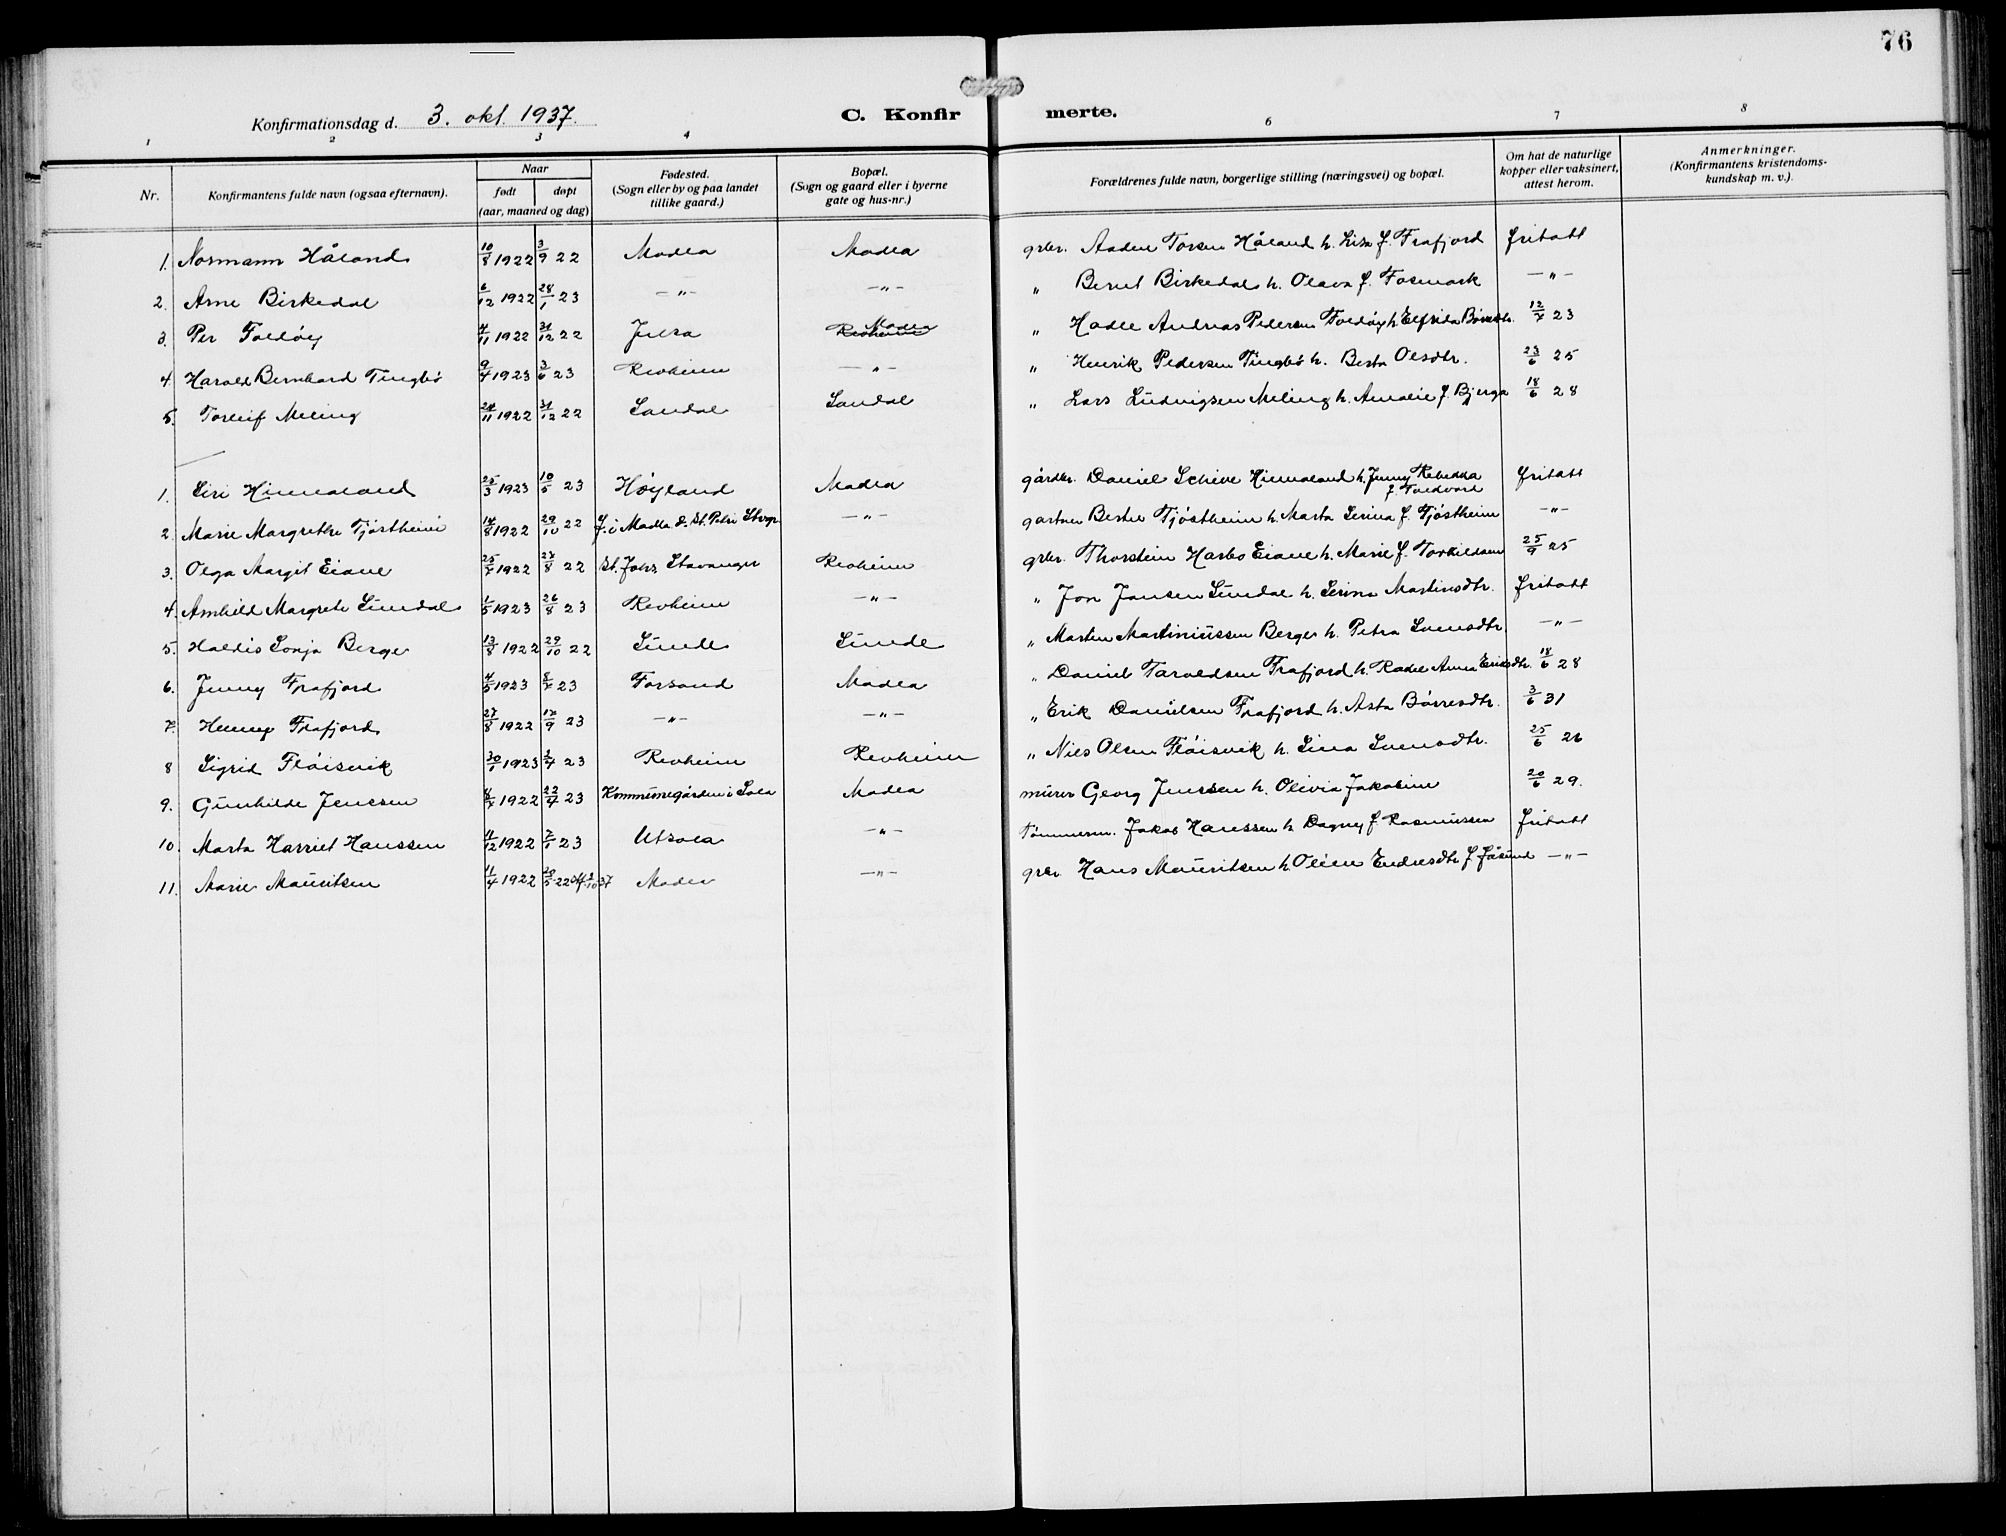 76
Konfirmationsdag d. 3. okt. 1937.
C. Konfirmerte.
1 2 3 4 6 7 8
Nr. Konfirmantens fulde navn (ogsaa efternavn). Naar født døpt (aar, maaned og dag) Fødested. (Sogn eller by og paa landet tillike gaard.) Bopæl. (Sogn og gaard eller i byerne gate og hus-nr.) Forældrenes fulde navn, borgerlige stilling (næringsvei) og bopæl. Om hat de naturlige kopper eller vaksinert, attest herom. Anmerkninger. (Konfirmantens kristendoms-kundskap m. v.).
1. Normann Håland 10/8 1922 3/9 22 Madla Madla grbr. Aadne Torsen Håland h. Lisa f. Frafjord fritatt
2. Arne Birkedal 6/12 1922 28/1 23 -"- -"- " Bernt Birkedal h. Olava f. Fosmark -"-
3. Per Foldøy 4/11 1922 31/12 22 Jelsa Revheim Madla " Hadle Andreas Pedersen Foldøy h. Elfrida Børresdtr. 12/7 23
4. Harald Bernhard Tingbø 9/4 1923 3/6 23 Revheim -"- " Henrik Pedersen Tingbø h. Berta Olsdtr. 23/6 25
5. Torleif Meling 24/11 1922 31/12 22 Sandal Sandal " Lars Ludvigsen Meling h. Amalie f. Bjerga 18/6 28
1. Siri Himaland 25/3 1923 10/5 23 Høyland Madla gårdbr. Daniel Scheve Himaland h. Jenny Rebekka f. Tuedvard fritatt
2. Marie Margrethe Tjøstheim 14/8 1922 29/10 22 f. i Madla d. St. Petri Stvgr. -"- gartner Bertre Tjøstheim h. Marta Serina f. Tjøstheim -"-
3. Olga Margit Eiane 25/7 1922 27/8 22 St. Johs. Stavanger Revheim grbr. Thorstein Harbo Eiane h. Marie f. Torkildsen 25/9 25
4. Arnhild Margrete Sundal 1/5 1923 26/8 23 Revheim -"- " Jon Jansen Sundal h. Serina Martinsdtr. fritatt
5. Haldis Sonja Berge 13/8 1922 29/10 22 Sunde Sunde " Marten Martiniussen Berge h. Petra Svensdtr. -"-
6. Jenny Frafjord 4/5 1923 8/7 23 Forsand Madla " Daniel Taraldsen Frafjord h. Rakel Anna Eriksdtr. 18/6 28
7. Henny Frafjord 27/8 1922 17/9 23 -"- -"- " Erik Danielsen Frafjord h. Asta Børresdtr. 3/6 31
8 Sigrid Fløisvik 30/1 1923 2/4 23 Revheim Revheim " Niels Olsen Fløisvik h. Lina Svensdtr. 25/6 26
9. Gunhilde Jenssen 1922 22/4 23 Kommunegården i Sola Madla murer Georg Jenssen h. Olivia Jakobine 20/6 29.
10. Marta Harriet Hanssen 11/12 1922 7/1 23 Utsola -"- Tømmerm. Jakob Hanssen h. Dagny f. Rasmussen fritatt
11. Marie Mauritsen 11/4 1922 20/5 22 37 Madla -"- grbr. Hans Mauritsen h. Oline Endresdtr. f. Jåsund -"-